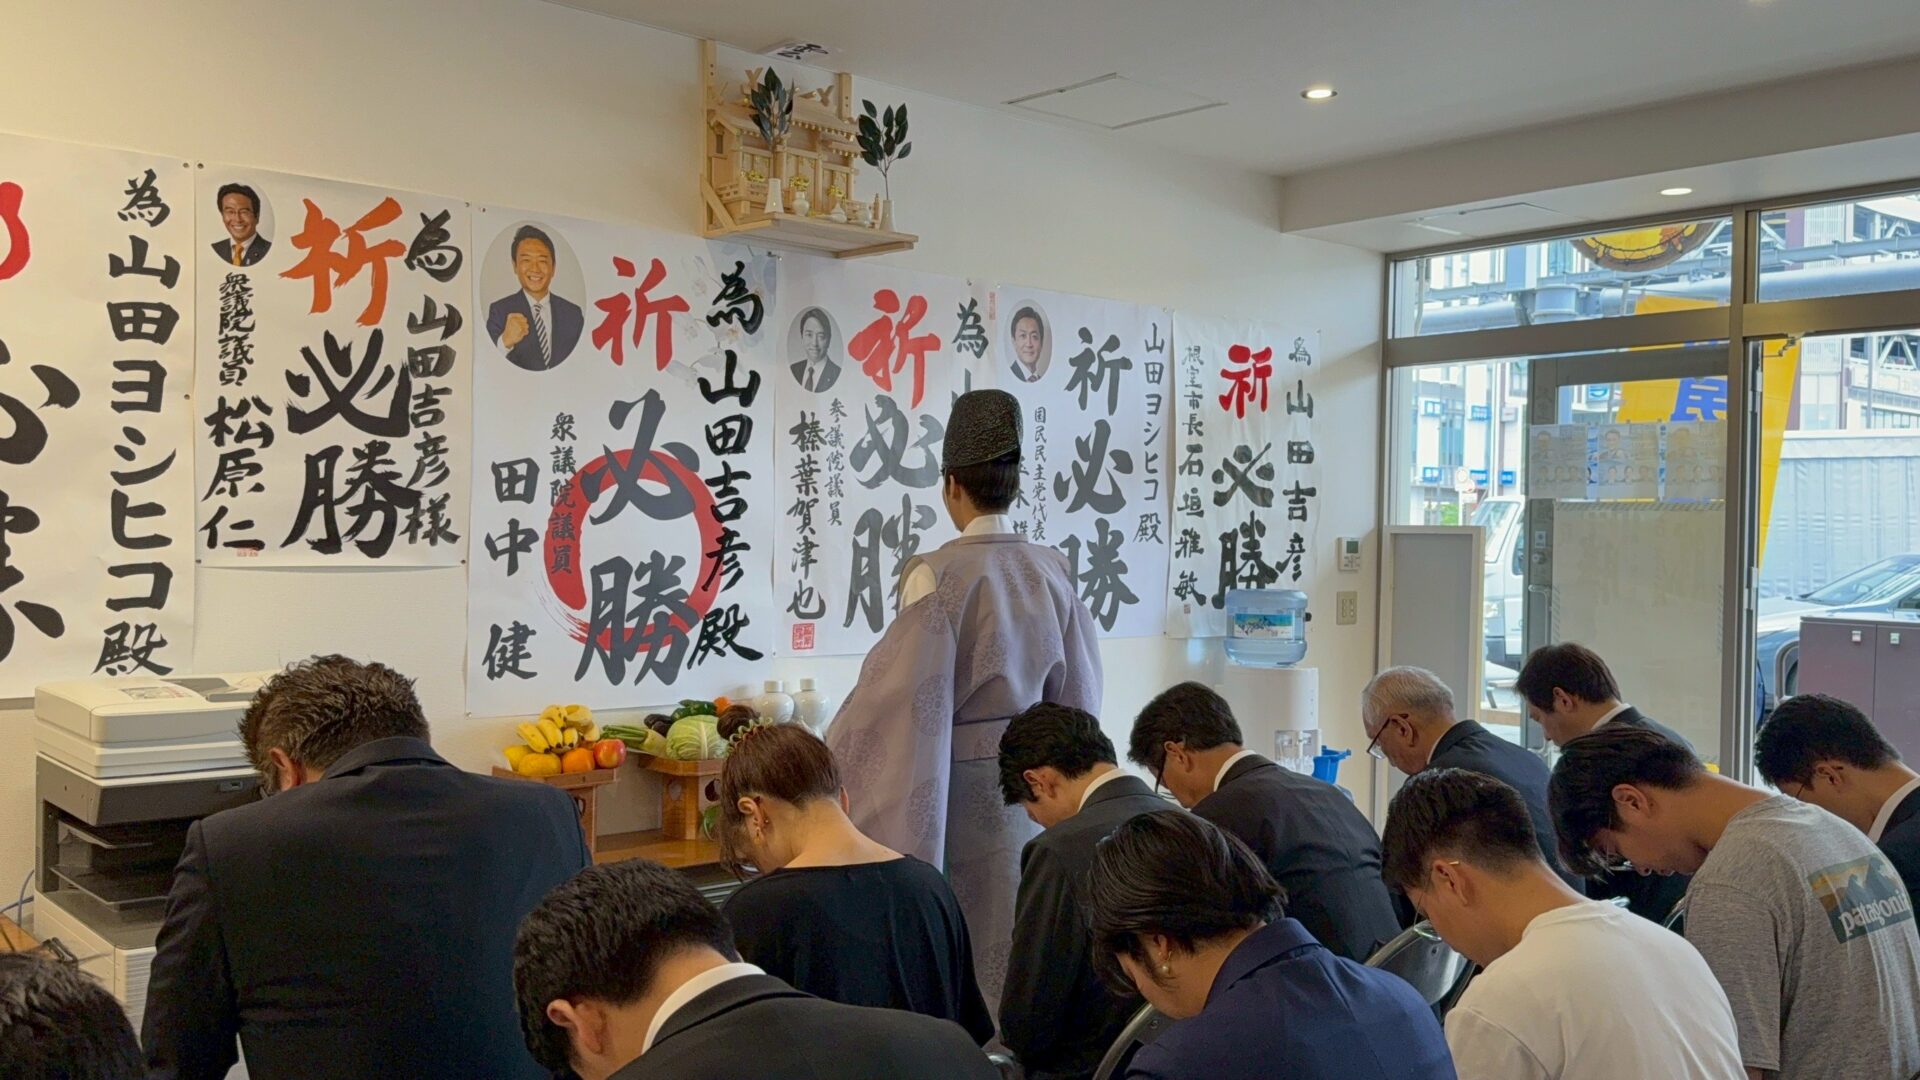 為
山田ヨシヒコ殿
為
山田吉彦様
祈
必勝
衆議院議員
松原仁
為
山田吉彦殿
祈
必勝
衆議院議員
田中
健
為山
祈
必勝
参議院議員
榛葉賀津也
山田ヨシヒコ殿
祈
必勝
国民民主党代表
為山田吉彦
祈
必勝
根室市長
石垣雅敏
patagonia